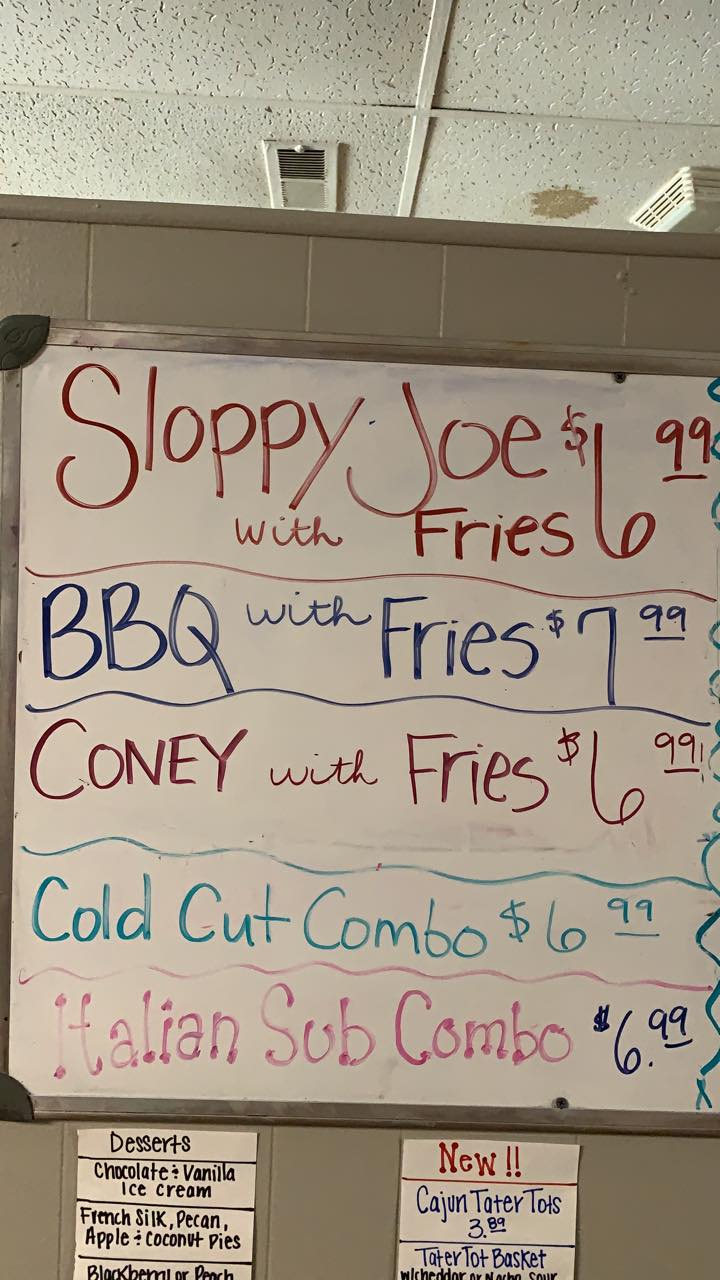 Sloppy Joe $6 99
with Fries
BBQ with Fries $7 99
CONEY with Fries $6 99
Cold Cut Combo $6 99
Italian Sub Combo $6.99
Desserts
Chocolate & Vanilla
Ice cream
French Silk, Pecan,
Apple & Coconut Pies
Blackberry or Peach
New!!
Cajun Tater Tots
3.89
Tater Tot Basket
w/cheddar or Nacho, Sour